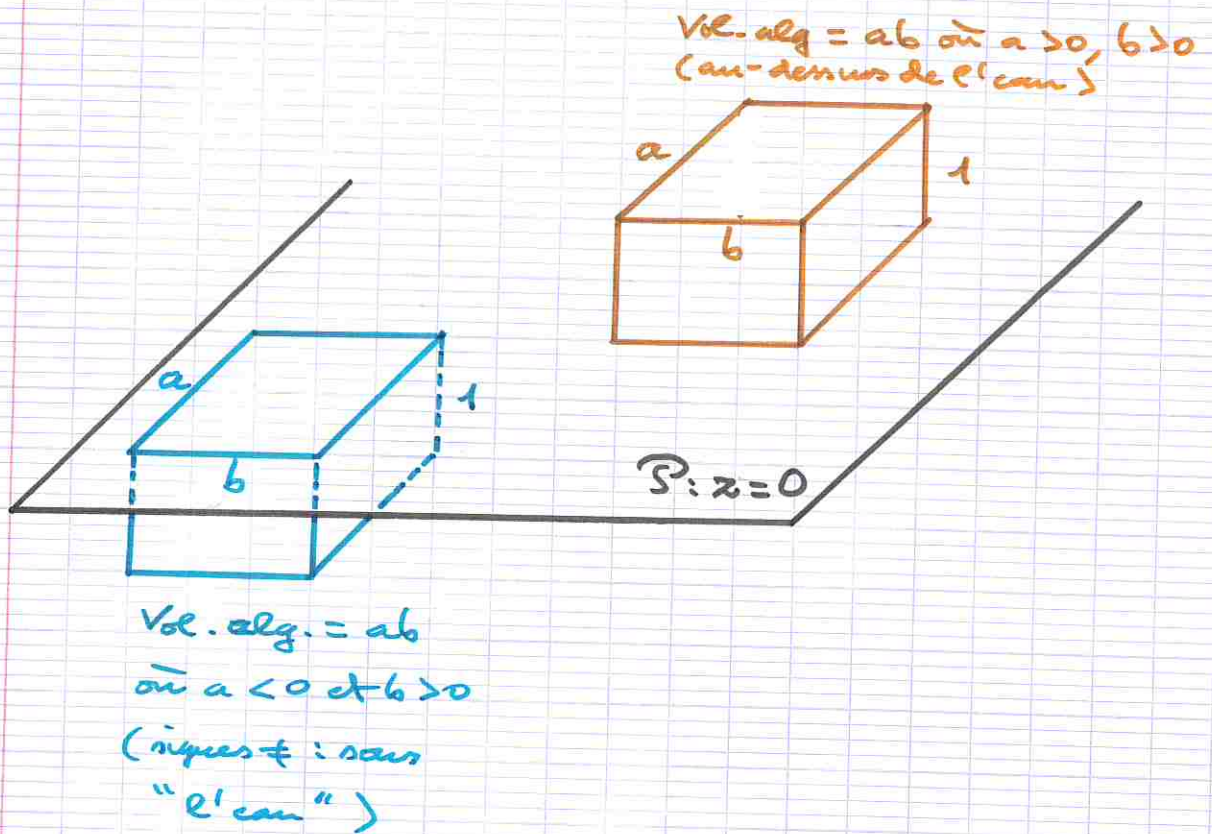 Vol. alg = ab où a > 0, b > 0
(au-dessus de l'eau)
a
1
b
a
1
b
P : z = 0
Vol. alg. = ab
où a < 0 et b > 0
(signes ≠ : sous
"l'eau")